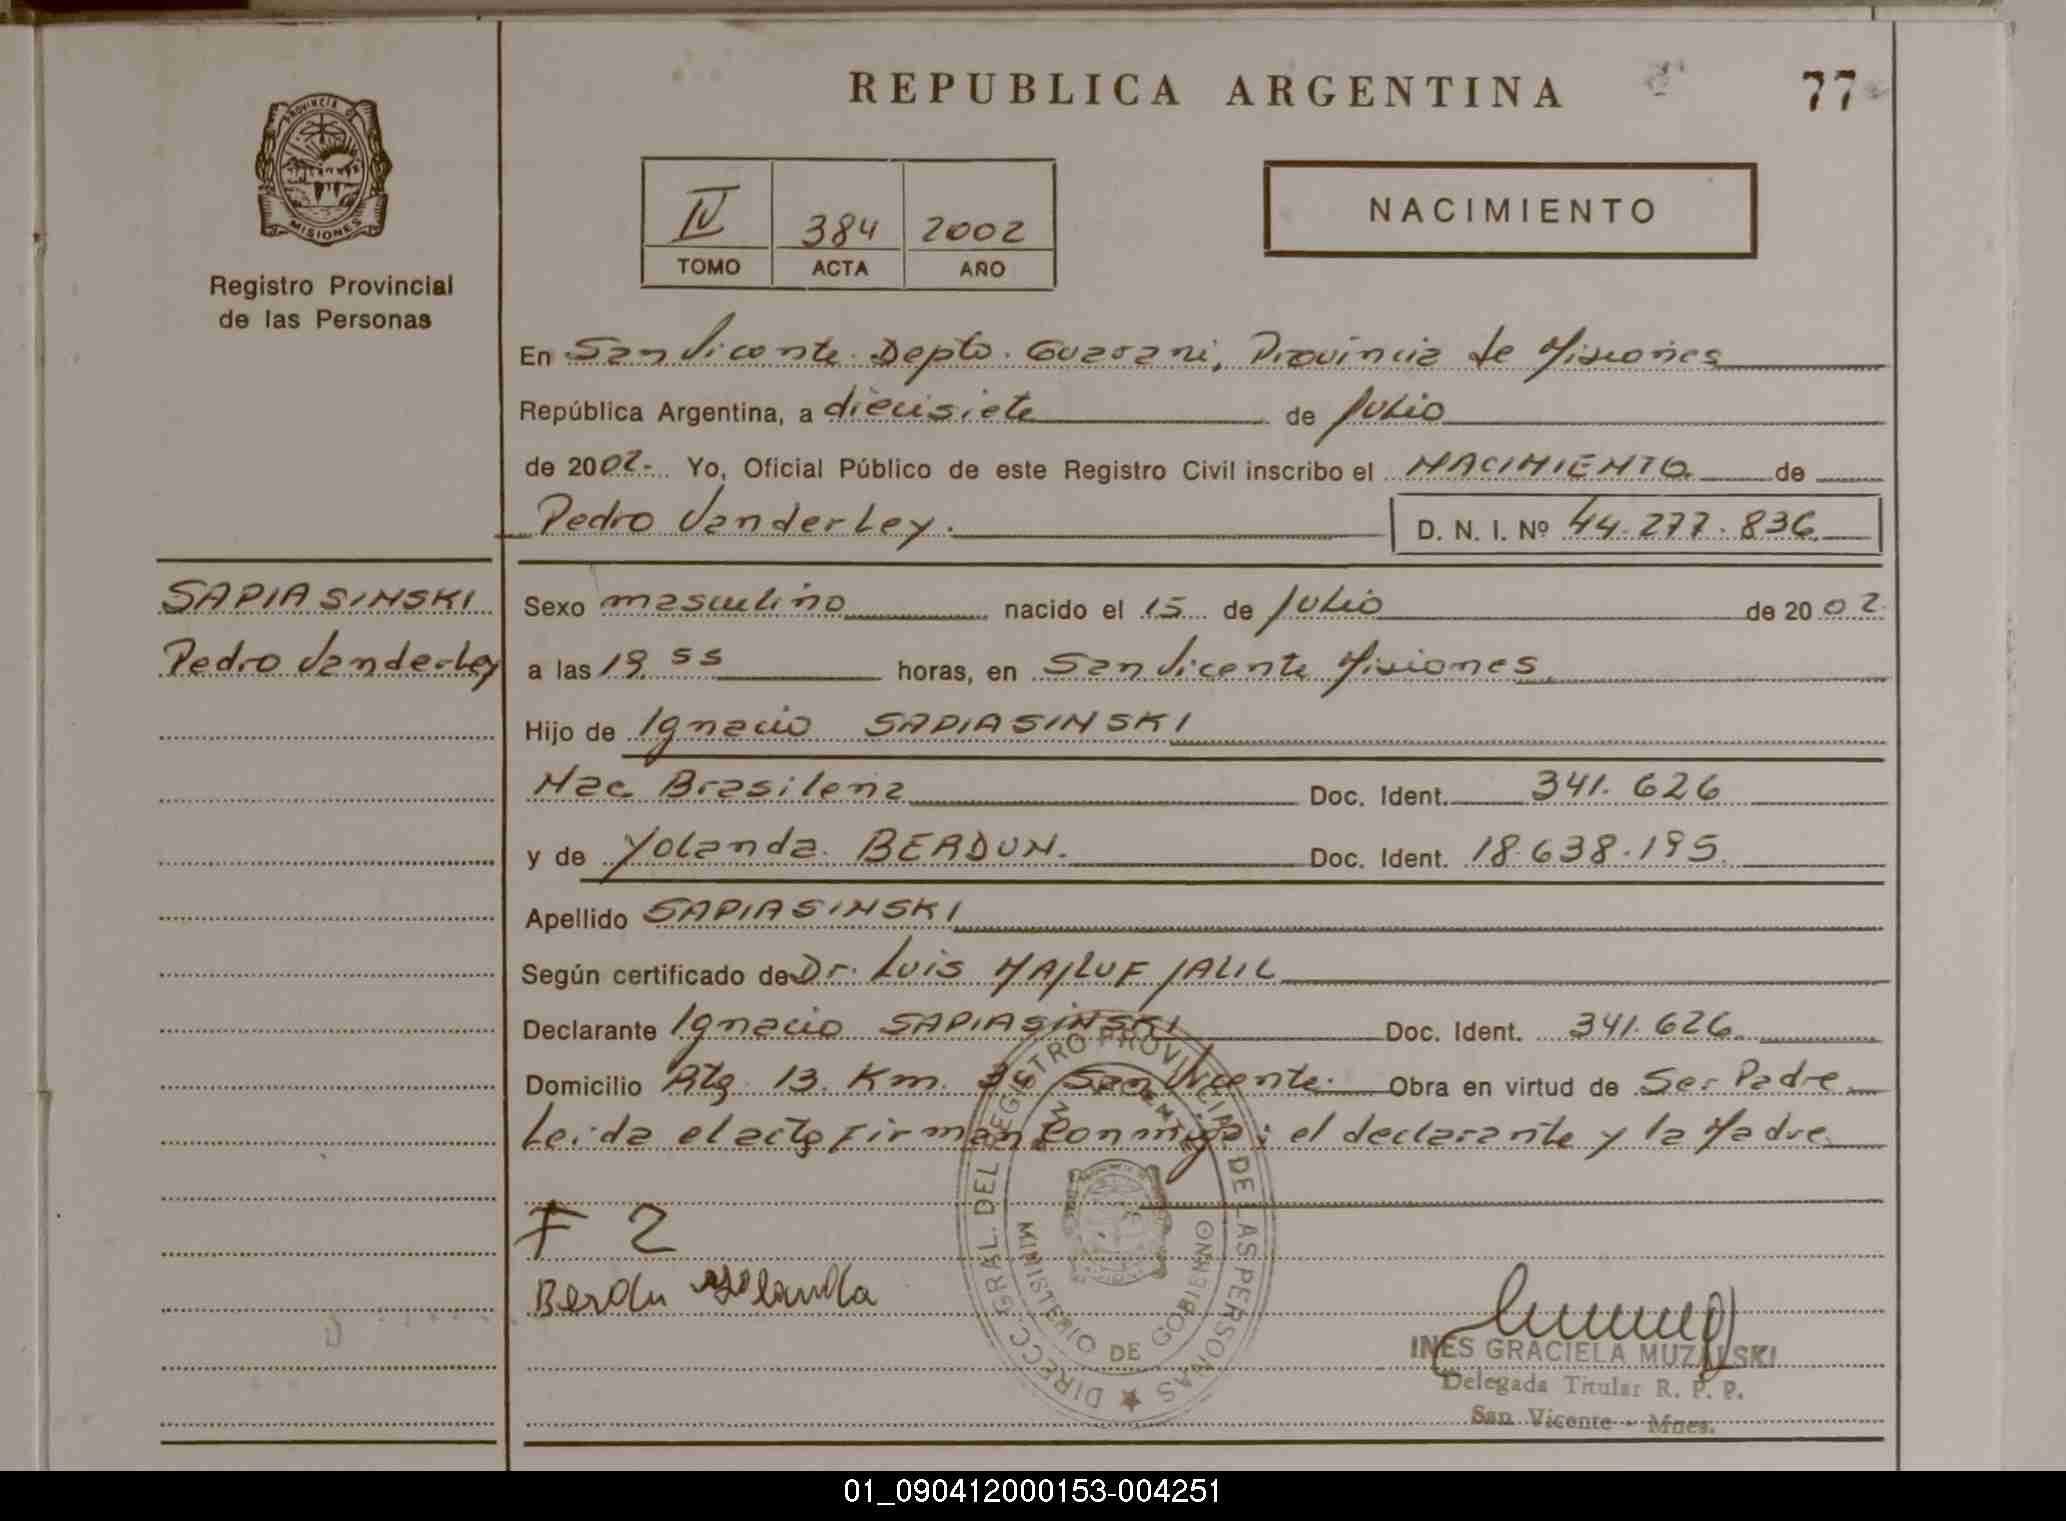 REPUBLICA ARGENTINA
77
PROVINCIA DE
MISIONES
Registro Provincial
de las Personas
IV 384 2002
TOMO ACTA AÑO
NACIMIENTO
En San Vicente Depto. Guarani, Provincia de Misiones
República Argentina, a diecisiete de Julio
de 2002- Yo, Oficial Público de este Registro Civil inscribo el NACIMIENTO de
Pedro Vanderley. D. N. I. Nº 44.277.836
SAPIASINSKI
Pedro Vanderley
Sexo masculino nacido el 15 de Julio de 2002
a las 19.55 horas, en San Vicente Misiones
Hijo de Ignacio SAPIASINSKI
Nac. Brasilena Doc. Ident. 341.626
y de Yolanda BERDUN. Doc. Ident. 18.638.195
Apellido SAPIASINSKI
Según certificado de Dr. Luis MAJLUF JALIL
Declarante Ignacio SAPIASINSKI Doc. Ident. 341.626
Domicilio Rta. 13. Km. San Vicente. Obra en virtud de Ser Padre
Leida el acta firman conmigo; el declarante y la Madre
F 2
Berdu Yolanda
DIRECC. GRAL. DEL REGISTRO PROVINCIAL DE LAS PERSONAS
MINISTERIO DE GOBIERNO
INES GRACIELA MUZALSKI
Delegada Titular R. P. P.
San Vicente - Mnes.
01_090412000153-004251